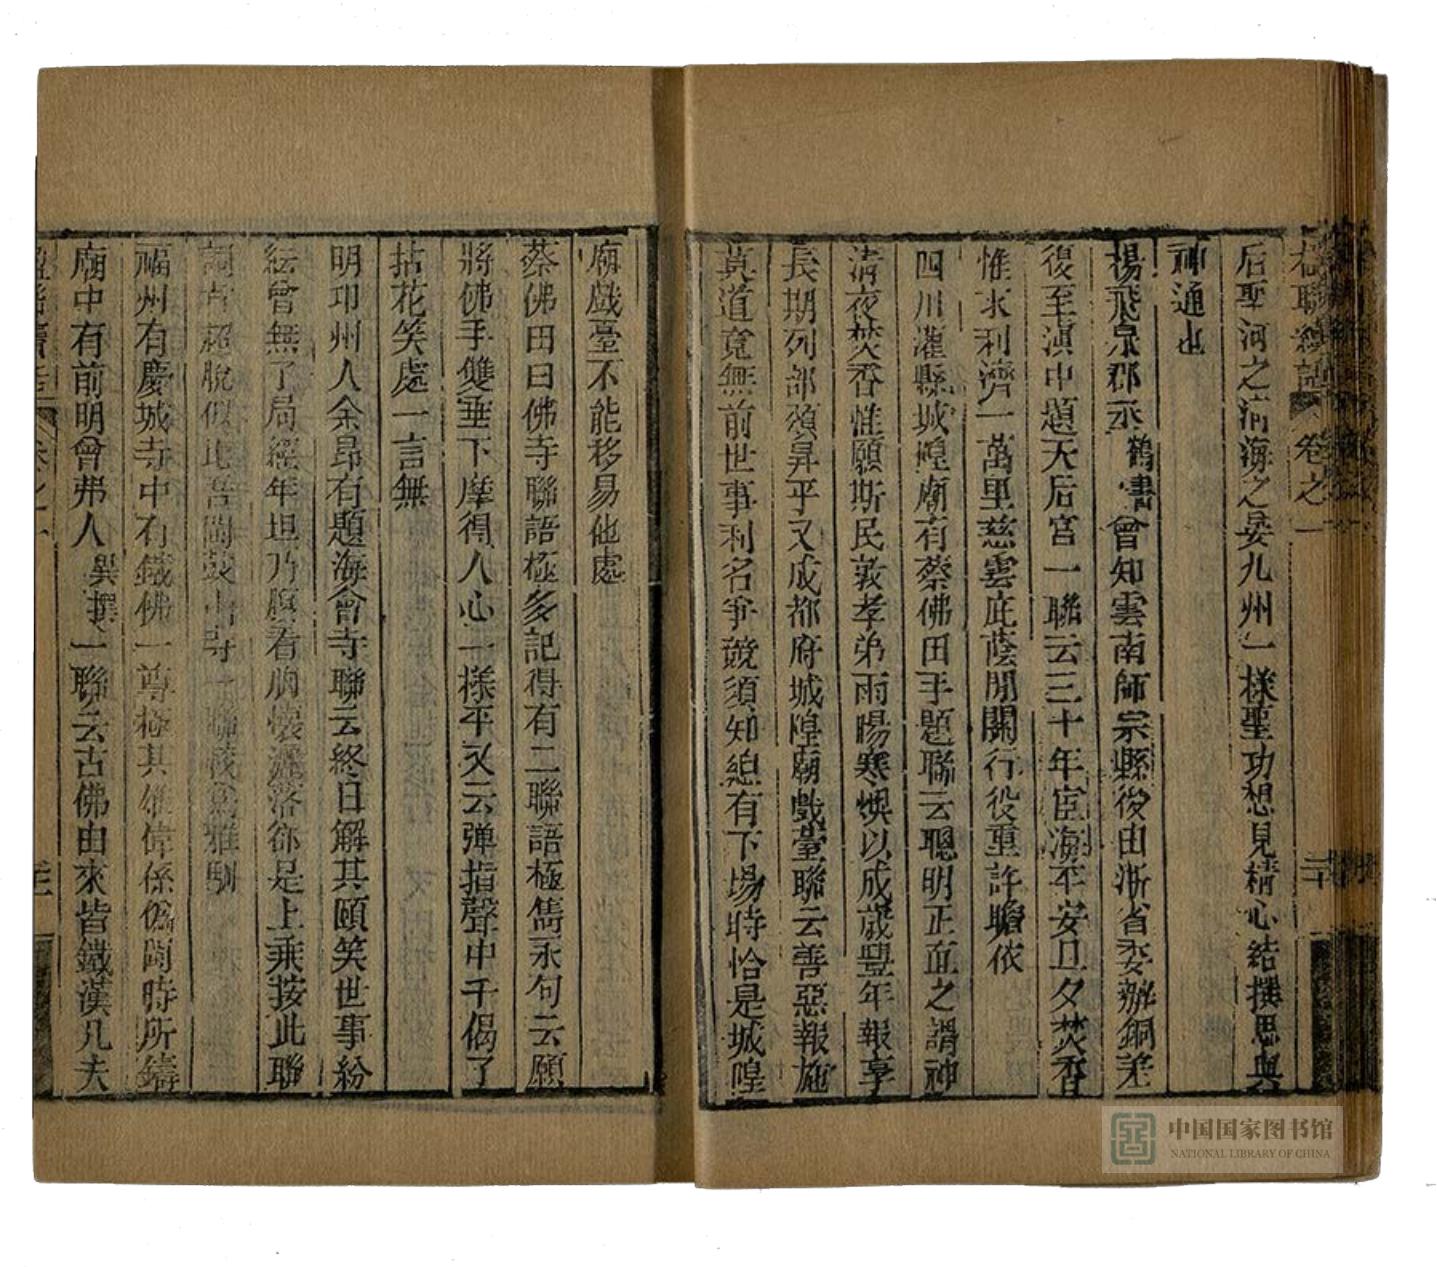 楹聯續話 卷之一 二十
后聖河之清海之晏九州一樣聖功想見精心結撰思與
神通也
楊飛泉郡丞鶴書曾知雲南師宗縣後由浙省委辦銅差
復至滇中題天后宮一聯云三十年宦海平安旦夕焚香
惟求利濟一萬里慈雲庇蔭間關行役重許瞻依
四川灌縣城隍廟有蔡佛田手題聯云聰明正直之謂神
清夜焚香惟願斯民敦孝弟雨暘寒燠以成歲豐年報享
長期列部頌昇平又成都府城隍廟戲臺聯云善惡報施
莫道竟無前世事利名爭競須知總有下場時恰是城隍
廟戲臺不能移易他處
蔡佛田曰佛寺聯語極多記得有二聯語極雋永句云願
將佛手雙垂下摩得人心一樣平又云弹指聲中千偈了
拈花笑處一言無
明卭州人余昂有題海會寺聯云終日解其頤笑世事紛
紜曾無了局經年坦乃腹看胸懷灑落卻是上乘按此聯
詞旨超脫似比吾閩鼓山寺一聯較爲雅馴
福州有慶城寺中有鐵佛一尊極其雄偉係僞閩時所鑄
廟中有前明曾弗人異撰一聯云古佛由來皆鐵漢凡夫